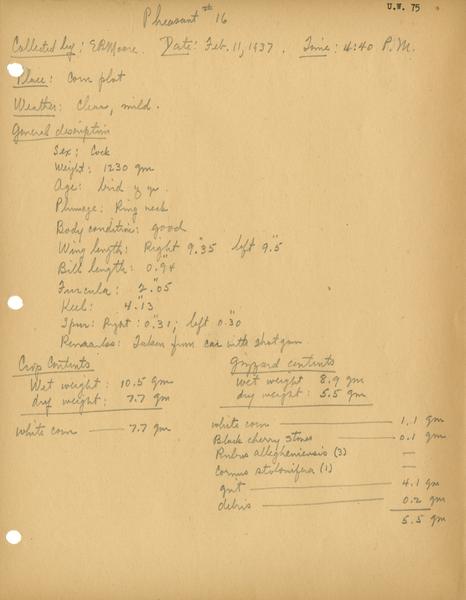 U.W. 75
Pheasant #16
Collected by: ERMoore. Date: Feb. 11, 1937. Time: 4:40 P.M.
Place: Corn plot
Weather: Clear, mild.
General description
Sex: Cock
Weight: 1230 gm
Age: bird of yr.
Plumage: Ring neck
Body condition: good
Wing length: Right 9.35" left 9.5"
Bill length: 0.94"
Furcula: 2.05"
Keel: 4.13"
Spur: Right: 0.31"; left 0.30"
Remarks: Taken from car with shotgun
Crop Contents
Wet weight: 10.5 gm
dry weight: 7.7 gm
White corn — 7.7 gm
Gizzard contents
wet weight 8.9 gm
dry weight: 5.5 gm
White corn — 1.1 gm
Black cherry stones — 0.1 gm
Rubus allegheniensis (3) —
Cornus stolonifera (1) —
grit — 4.1 gm
debris — 0.2 gm
5.5 gm